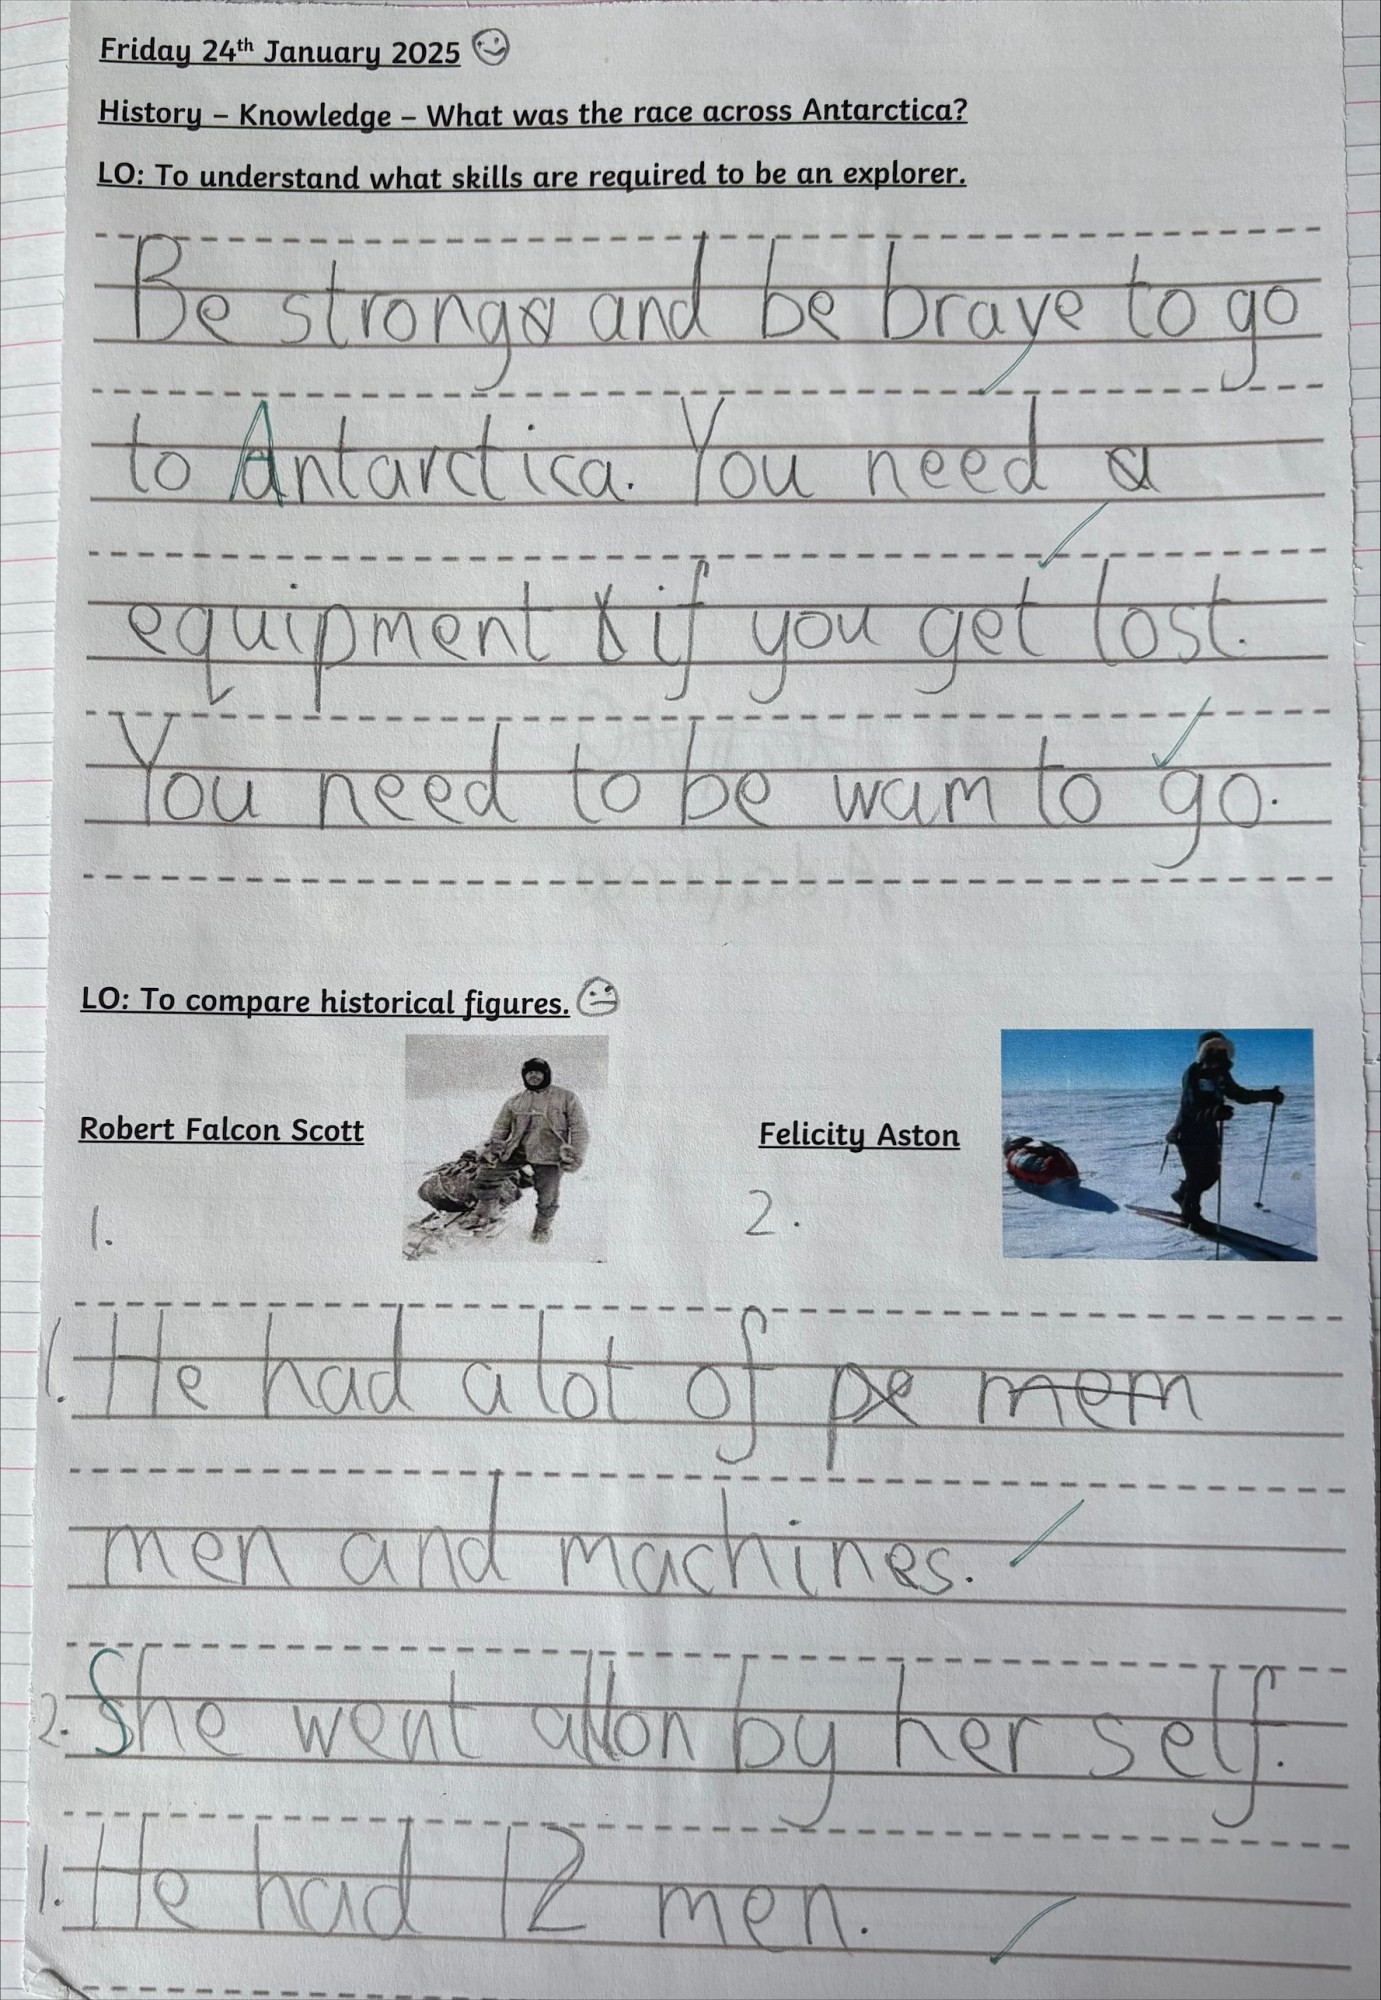 Friday 24th January 2025
History – Knowledge – What was the race across Antarctica?
LO: To understand what skills are required to be an explorer.
Be strong and be brave to go
to Antarctica. You need
equipment if you get lost.
You need to be wam to go.
LO: To compare historical figures.
Robert Falcon Scott
Felicity Aston
1.
2.
1. He had a lot of
men and machines.
2. She went allon by her self.
1. He had 12 men.